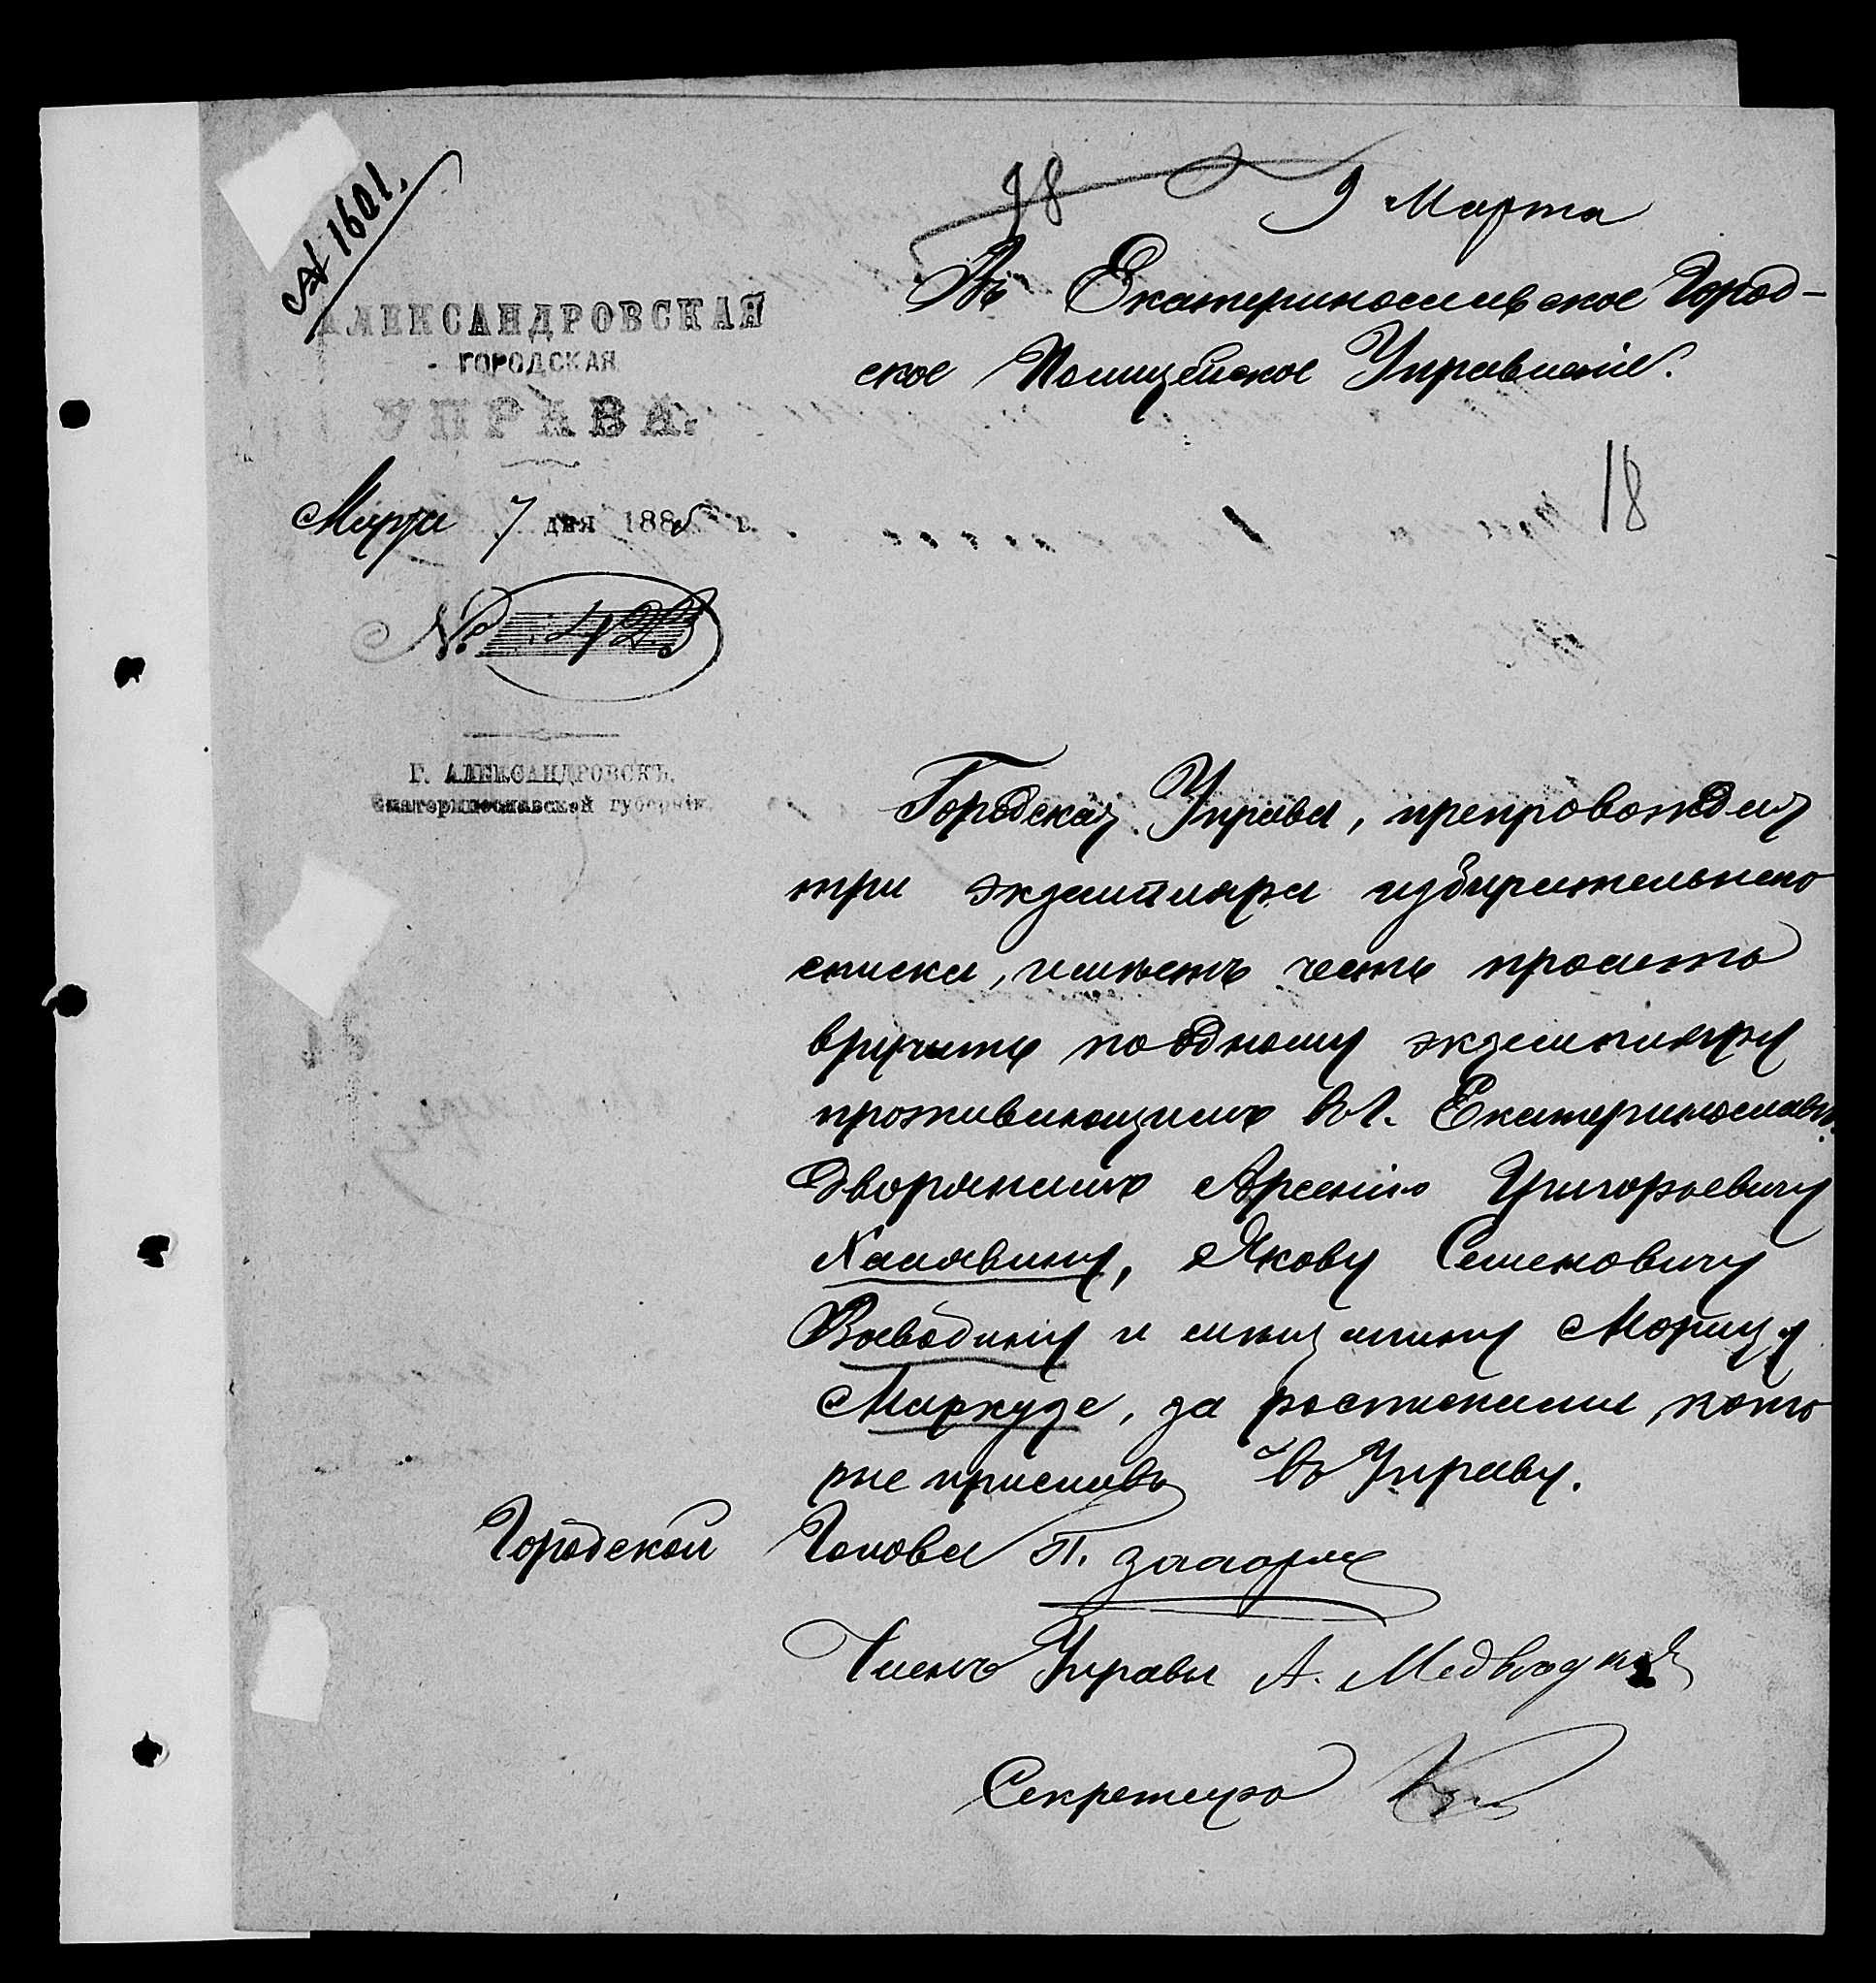 № 1601.
98
9 Марта
АЛЕКСАНДРОВСКАЯ
ГОРОДСКАЯ
УПРАВА.
Марта 7 дня 1885 г.
№ 423
Г. АЛЕКСАНДРОВСКЪ,
Екатеринославской губерніи.
Въ Екатеринославское Город-
ское Полицейское Управленіе.
18
Городская Управа, препровождая
три экземпляра избирательнаго
списка, имѣетъ честь просить
вручить по одному экземпляру
проживающимъ въ г. Екатеринославѣ.
дворянамъ Арсенію Григорьевичу
Халявину, Якову Семеновичу
Воеводину и мѣщанину Морицу
Маркузе, за росписками, кото
рые прислать въ Управу.
Городской Голова П.
Членъ Управы А.
Секретарь